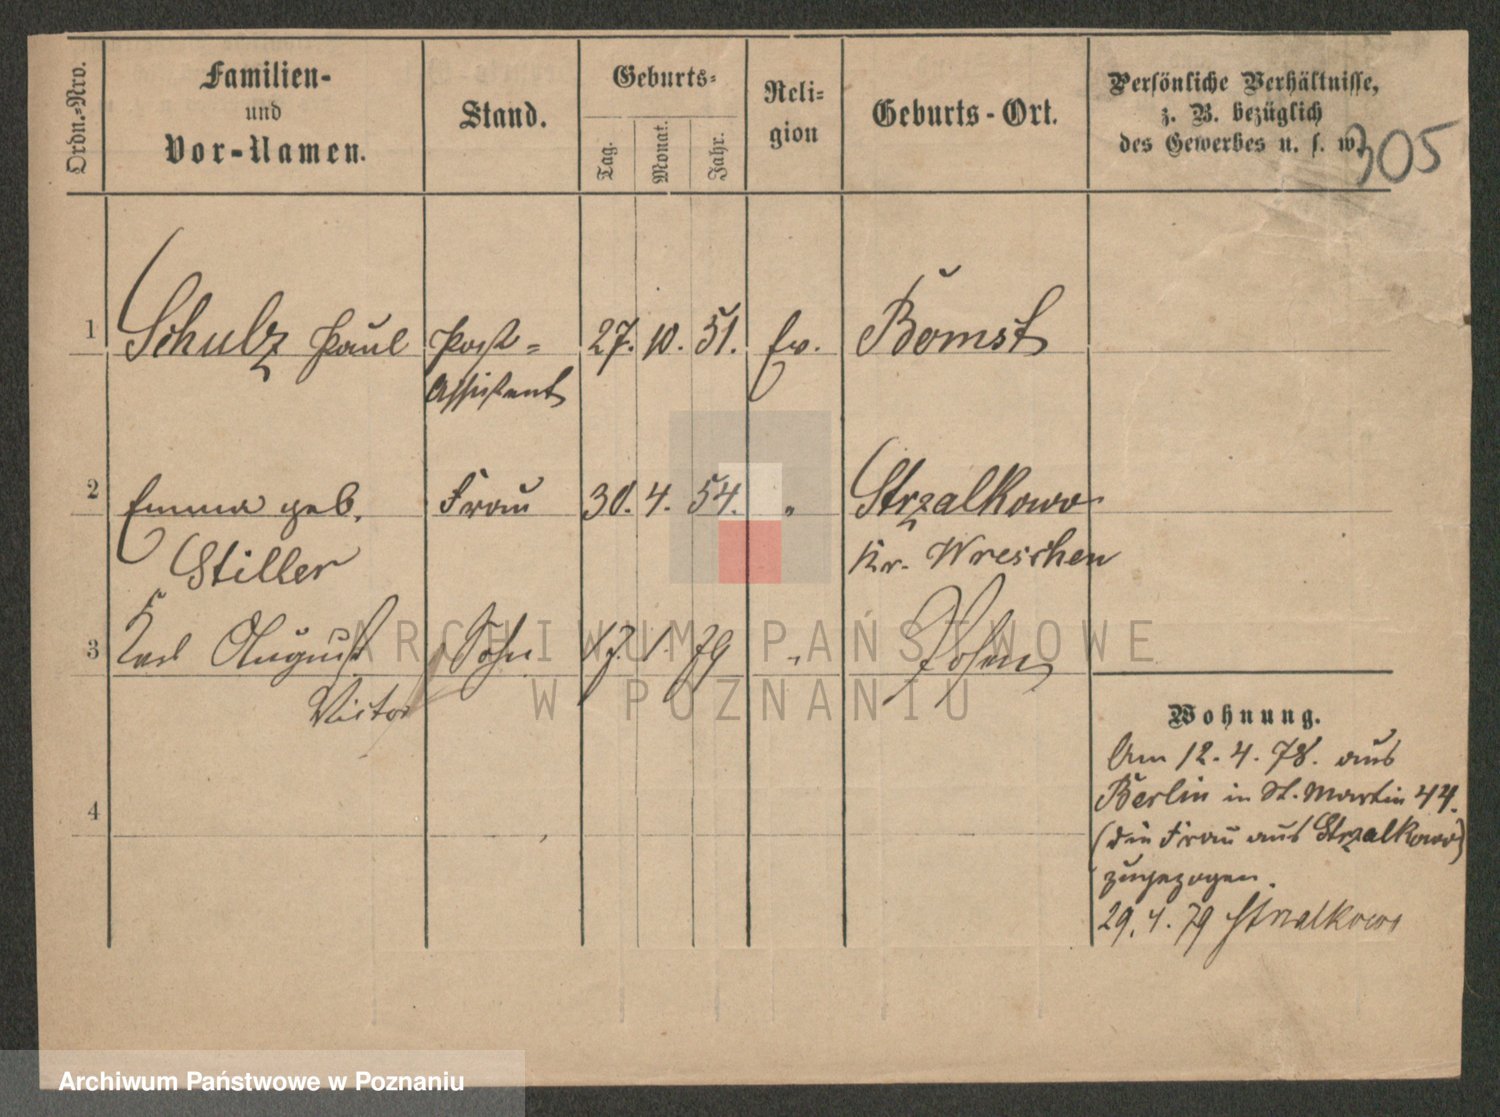 Ordn.-Nro.
Familien-
und
Vor-Namen.
Stand.
Geburts-
Tag.
Monat.
Jahr.
Reli-
gion
Geburts-Ort.
Persönliche Verhältnisse,
z. B. bezüglich
des Gewerbes u. s. w.
305
1 Schulz Paul Post- 27. 10. 51. Ev. Bomst
Assistent
2 Emma geb. Frau 30. 4. 54. " Strzalkowo
Stiller Kr. Wreschen
3 Karl August Sohn 17. 1. 79 " Posen
Victor
4
Wohnung.
Am 12. 4. 78. aus
Berlin in St. Martin 44.
(die Frau aus Strzalkowo)
zugezogen.
29. 4. 79 Strzalkowo
ARCHIWUM PAŃSTWOWE
W POZNANIU
Archiwum Państwowe w Poznaniu